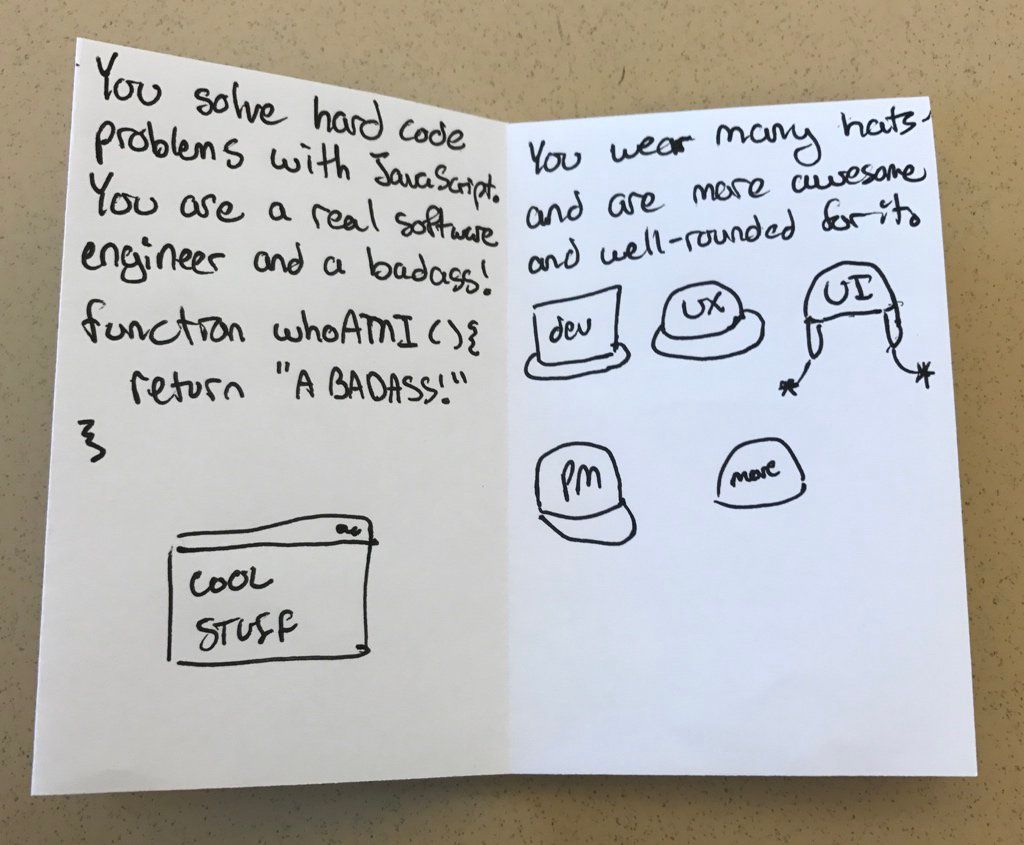 You solve hard code
problems with JavaScript.
You are a real software
engineer and a badass!
function whoAMI (){
return "A BADASS!"
}
COOL
STUFF
You wear many hats
and are more awesome
and well-rounded for it.
dev
UX
UI
PM
more